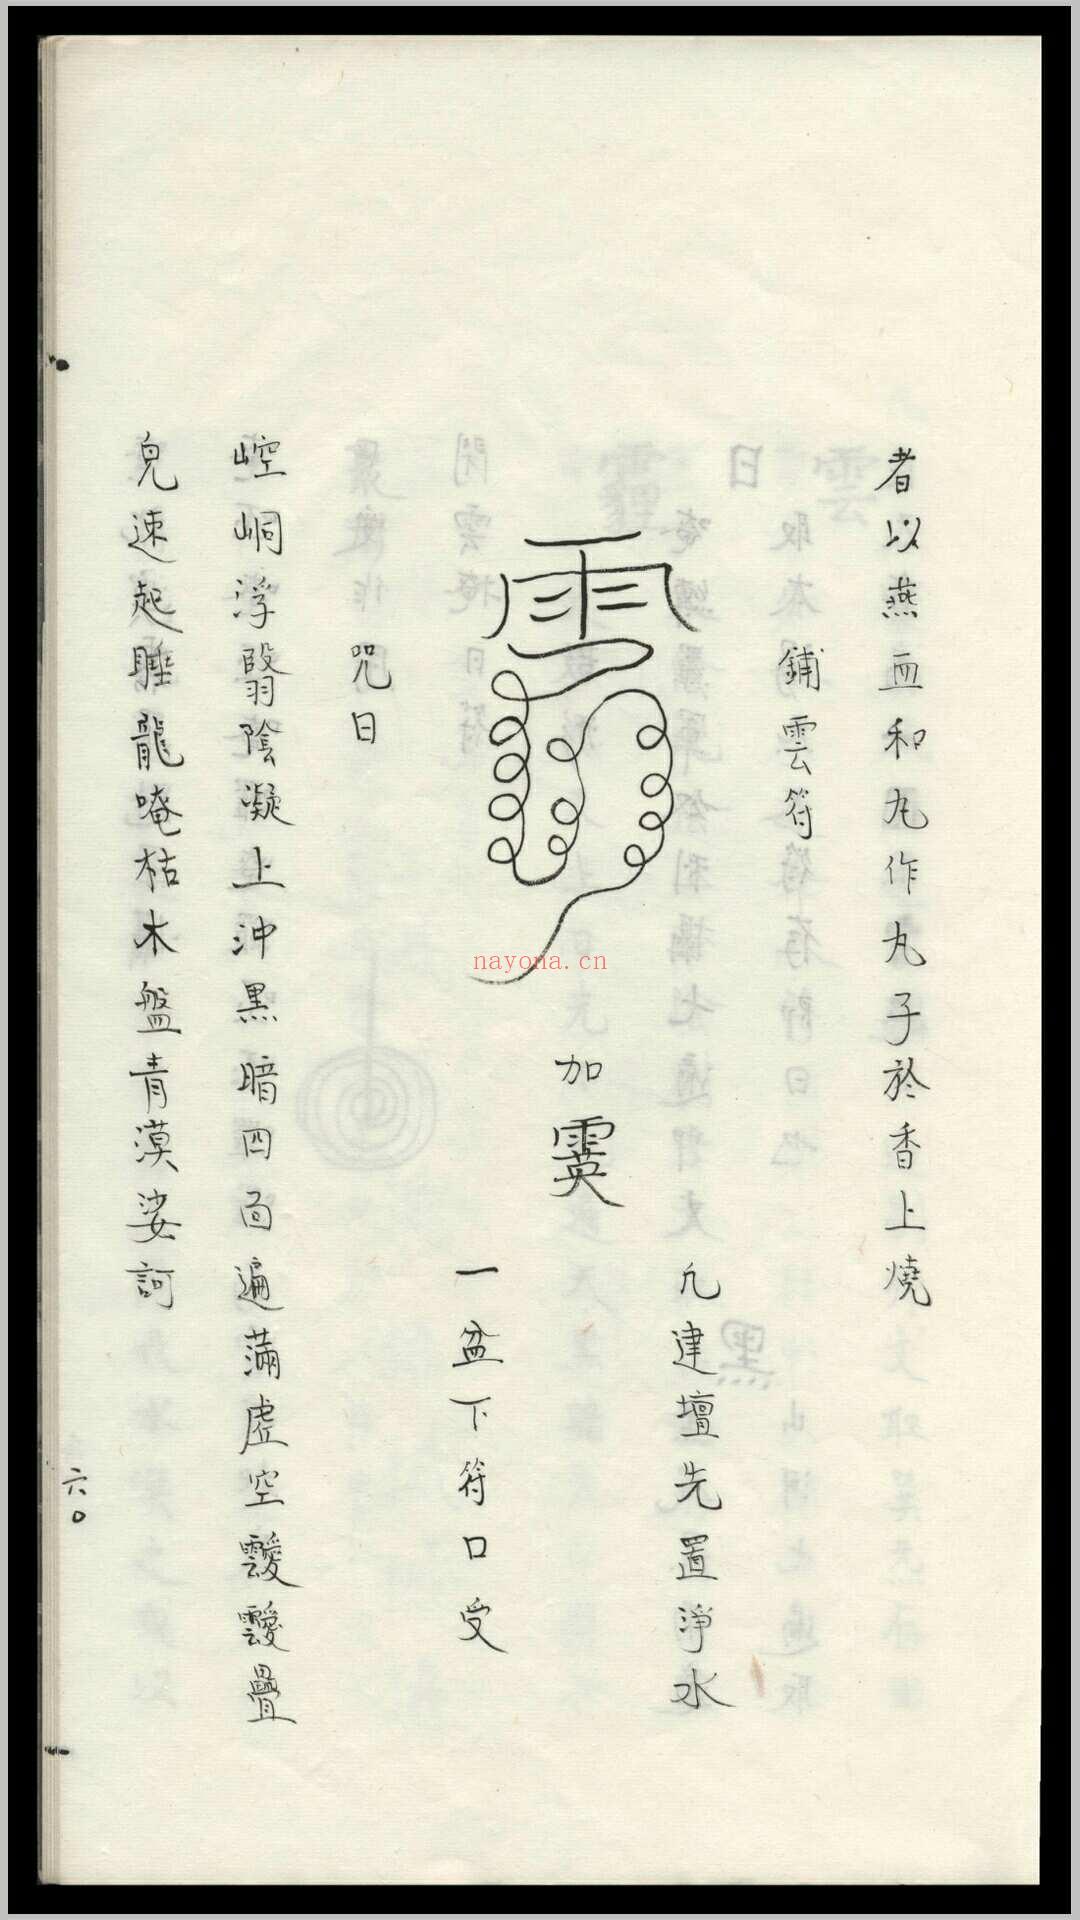 者以燕血和丸作丸子於香上燒
鋪雲符
加霙
凡建壇先置淨水
一盆下符口受
咒曰
崆峒浮翳陰凝上沖黑暗四面遍滿虛空靉靉疊
皃速起睡龍唵枯木盤青漠娑訶
六〇
nayona.cn